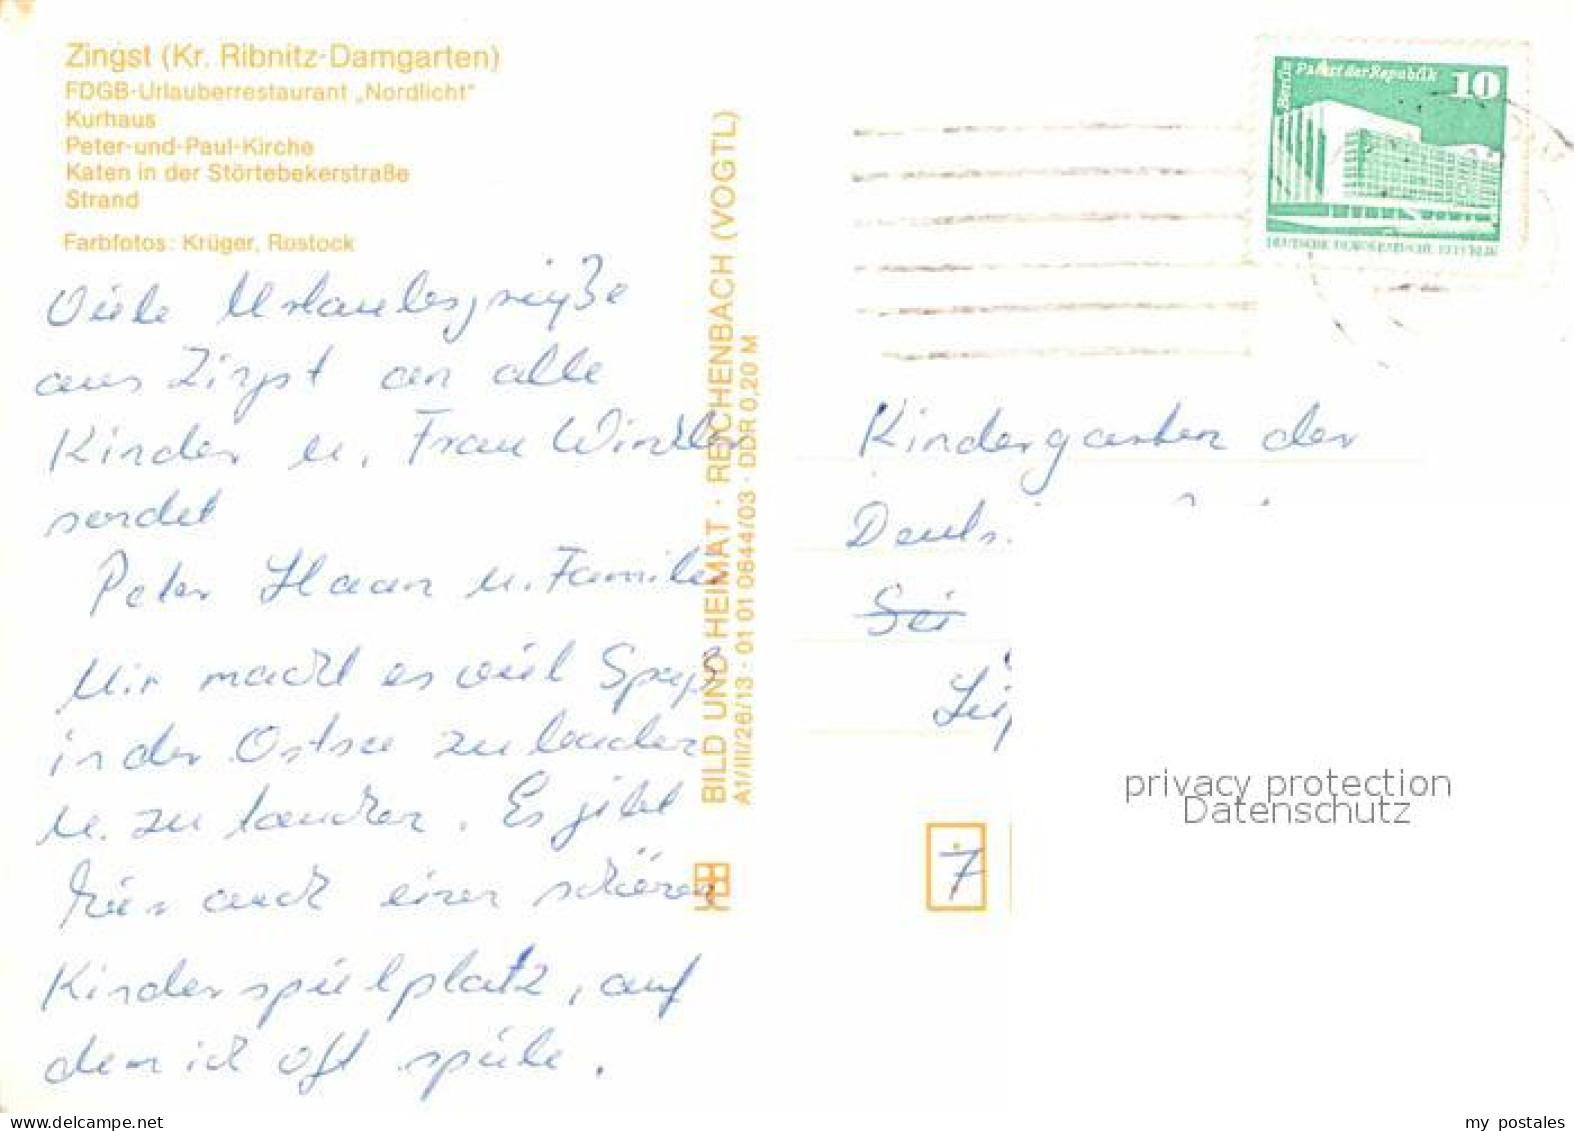 Zingst (Kr. Ribnitz-Damgarten)
FDGB-Urlauberrestaurant „Nordlicht"
Kurhaus
Peter-und-Paul-Kirche
Katen in der Störtebekerstraße
Strand
Farbfotos: Krüger, Rostock
Viele Urlaubsgrüße
aus Zingst an alle
Kinder u. Frau Winkler
sendet
Peter Haan u. Familie
Mir macht es viel Spaß
in der Ostsee zu baden
u. zu tauchen. Es gibt
hier auch einen schönen
Kinderspielplatz, auf
dem ich oft spiele.
BILD UND HEIMAT · REICHENBACH (VOGTL)
A1/III/26/13 · 01 01 0644/03 · DDR 0,20 M
Berlin Palast der Republik 10
DEUTSCHE DEMOKRATISCHE REPUBLIK
Kindergarten der
7
privacy protection
Datenschutz
my postales